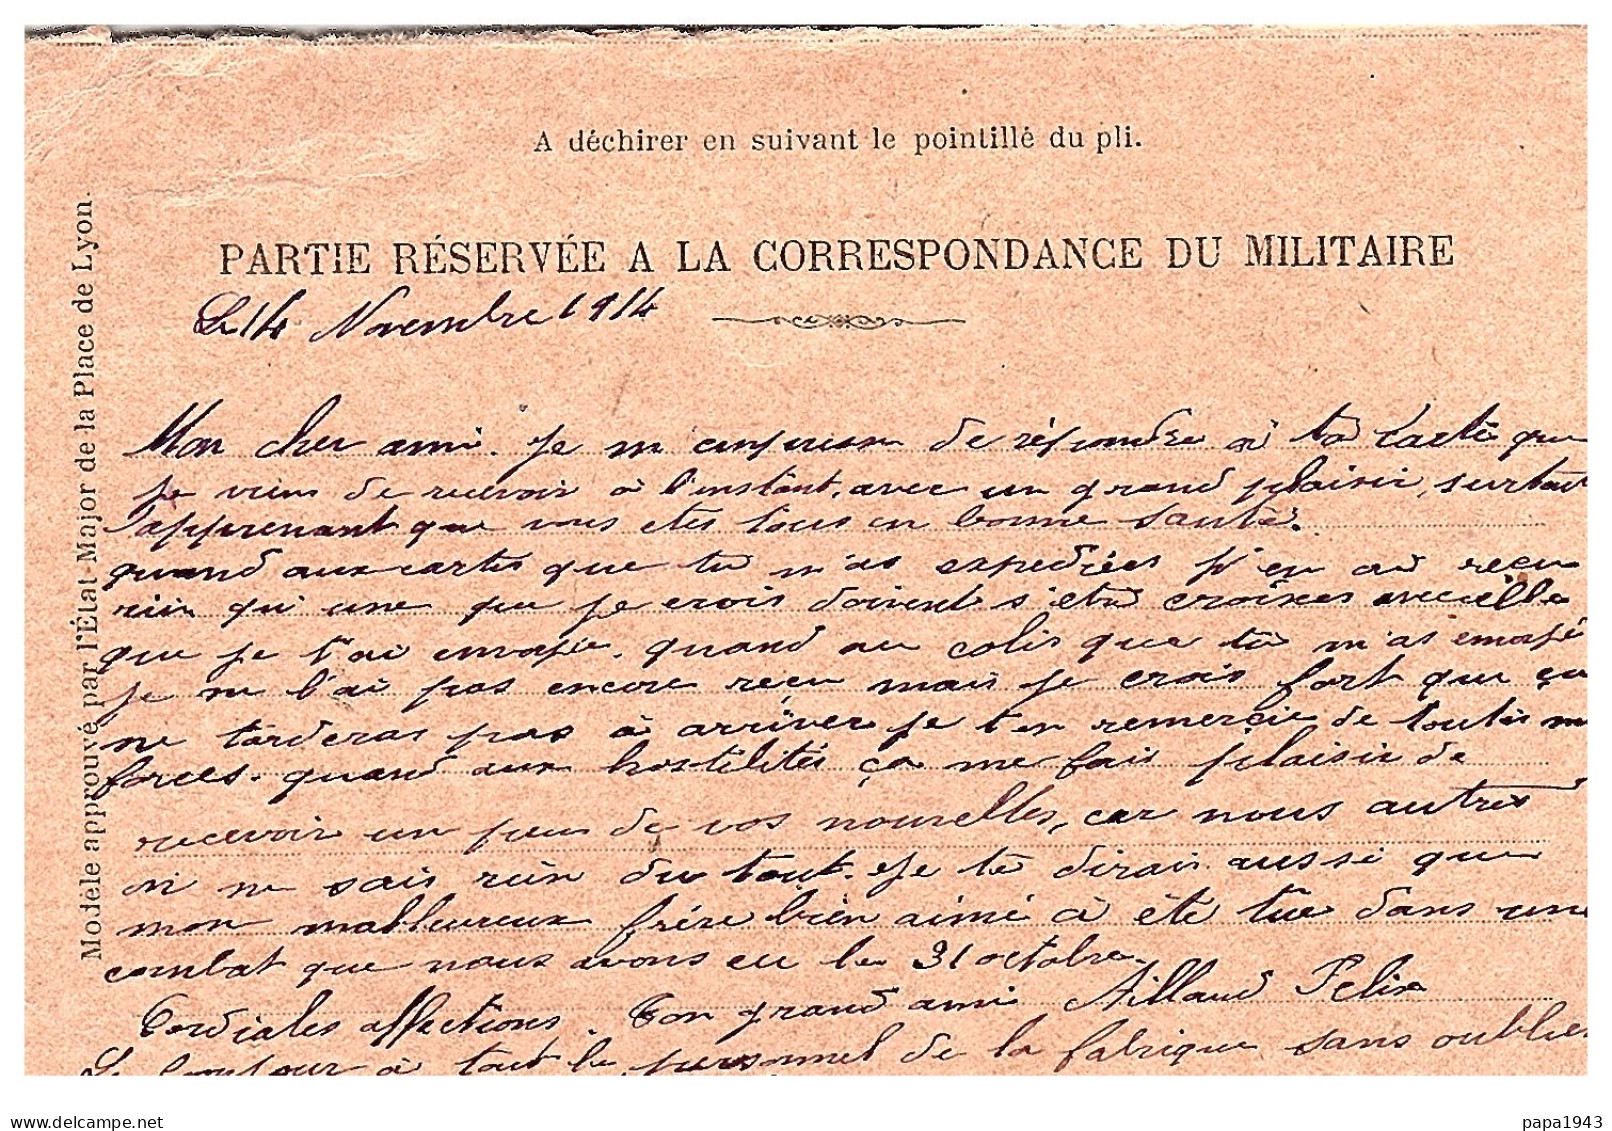 A déchirer en suivant le pointillé du pli.
PARTIE RÉSERVÉE A LA CORRESPONDANCE DU MILITAIRE
Modèle approuvé par l'État-Major de la Place de Lyon.
Le 14 Novembre 1914
Mon cher ami. Je m'empresse de répondre à ta carte que
je viens de recevoir à l'instant, avec un grand plaisir, surtout
d'apprenant que vous etes tous en bonne santé.
quand aux cartes que tu m'as expediées j'en ai reçu
rien qu'une que je crois doivent s'etre croisées avec celle
que je t'ai envoyée. quand au colis que tu m'as envoyé
je ne l'ai pas encore reçu mais je crois fort que ça
ne tarderas pas à arriver je t'en remercie de toutes mes
forces. quand aux hostilités ça me fais plaisir de
recevoir un peu de vos nouvelles, car nous autres
on ne sais rien du tout. Je te dirais aussi que
mon malheureux frère bien aimé à été tué dans un
combat que nous avons eu le 31 octobre.
Cordiales affections. Ton grand ami Aillaud Felix
Le bonjour à tout le personnel de la fabrique sans oublier
delcampe.net
papa1943